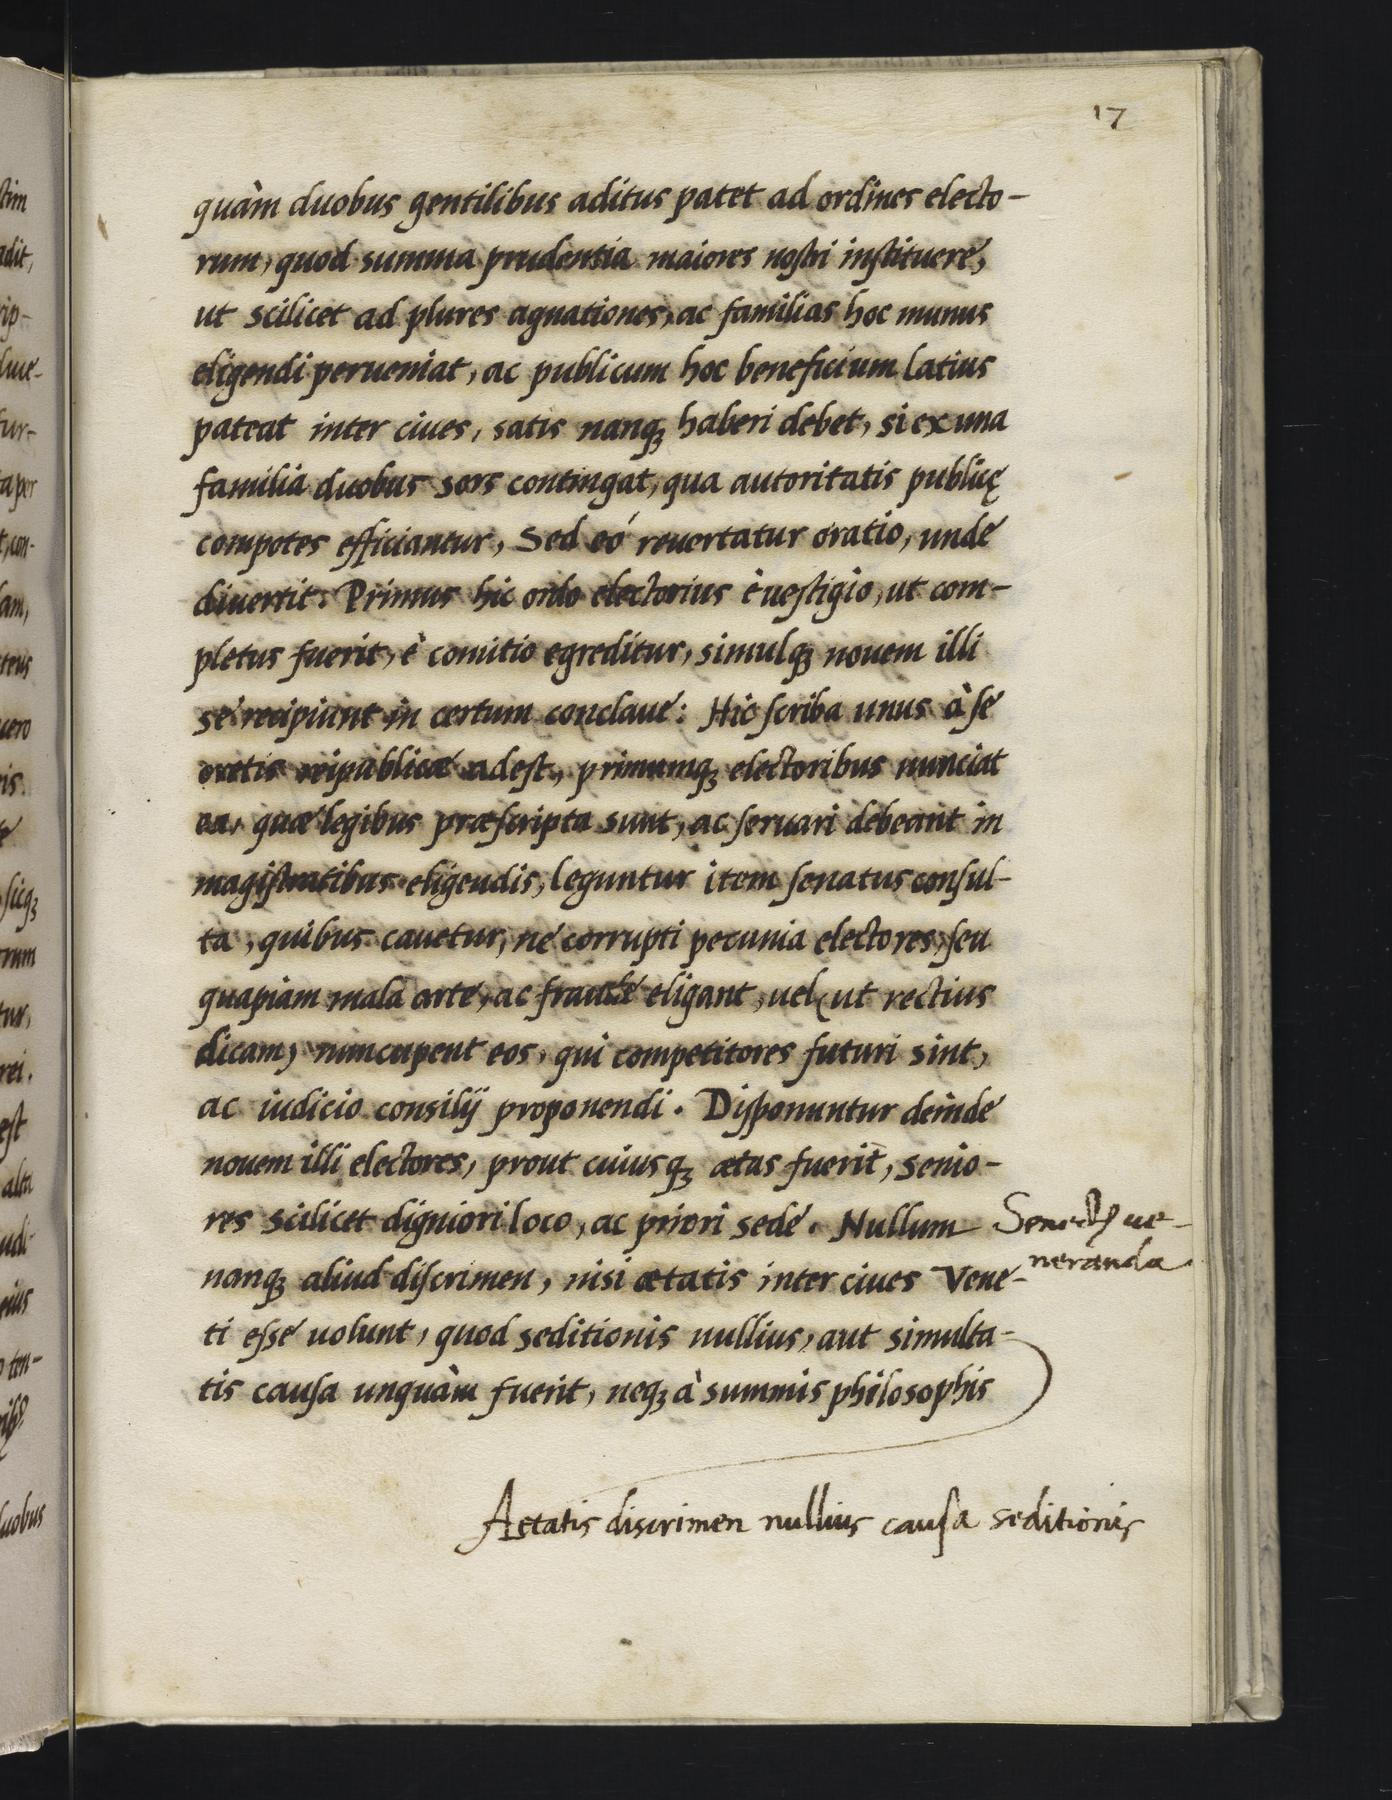 17
quàm duobus gentilibus aditus patet ad ordines electo-
rum, quod summa prudentia maiores nostri instituere,
ut scilicet ad plures agnationes, ac familias hoc munus
eligendi perueniat, ac publicum hoc beneficium latius
pateat inter ciues, satis nanq; haberi debet, si ex una
familia duobus sors contingat, qua autoritatis publicę
compotes efficiantur, Sed eó reuertatur oratio, unde
diuertit. Primus hic ordo electorius è uestigio, ut com-
pletus fuerit, è comitio egreditur, simulq; nouem illi
se recipiunt in certum conclaue: Hic scriba unus à se
cretis reipublicæ adest, primumq; electoribus nunciat
ea, quæ legibus præscripta sunt, ac seruari debeant in
magistratibus eligendis, leguntur item senatus consul-
ta, quibus cauetur, ne corrupti pecunia electores, seu
quapiam mala arte, ac fraude eligant, uel (ut rectius
dicam) nuncupent eos, qui competitores futuri sint,
ac iudicio consilij proponendi. Disponuntur deinde
nouem illi electores, prout cuiusq; ætas fuerit, senio-
res scilicet digniori loco, ac priori sede. Nullum
nanq; aliud discrimen, nisi ætatis inter ciues Vene-
ti esse uolunt, quod seditionis nullius, aut simulta-
tis causa unquàm fuerit, neq; à summis philosophis
Senectus ue-
neranda
Aetatis discrimen nullius causa seditionis
stim
adit,
rip-
tur-
ta per
t, con-
lam,
uero
ris.
sicq;
rum
tur,
rei.
est
alta
udi-
eius
o ten-
duobus